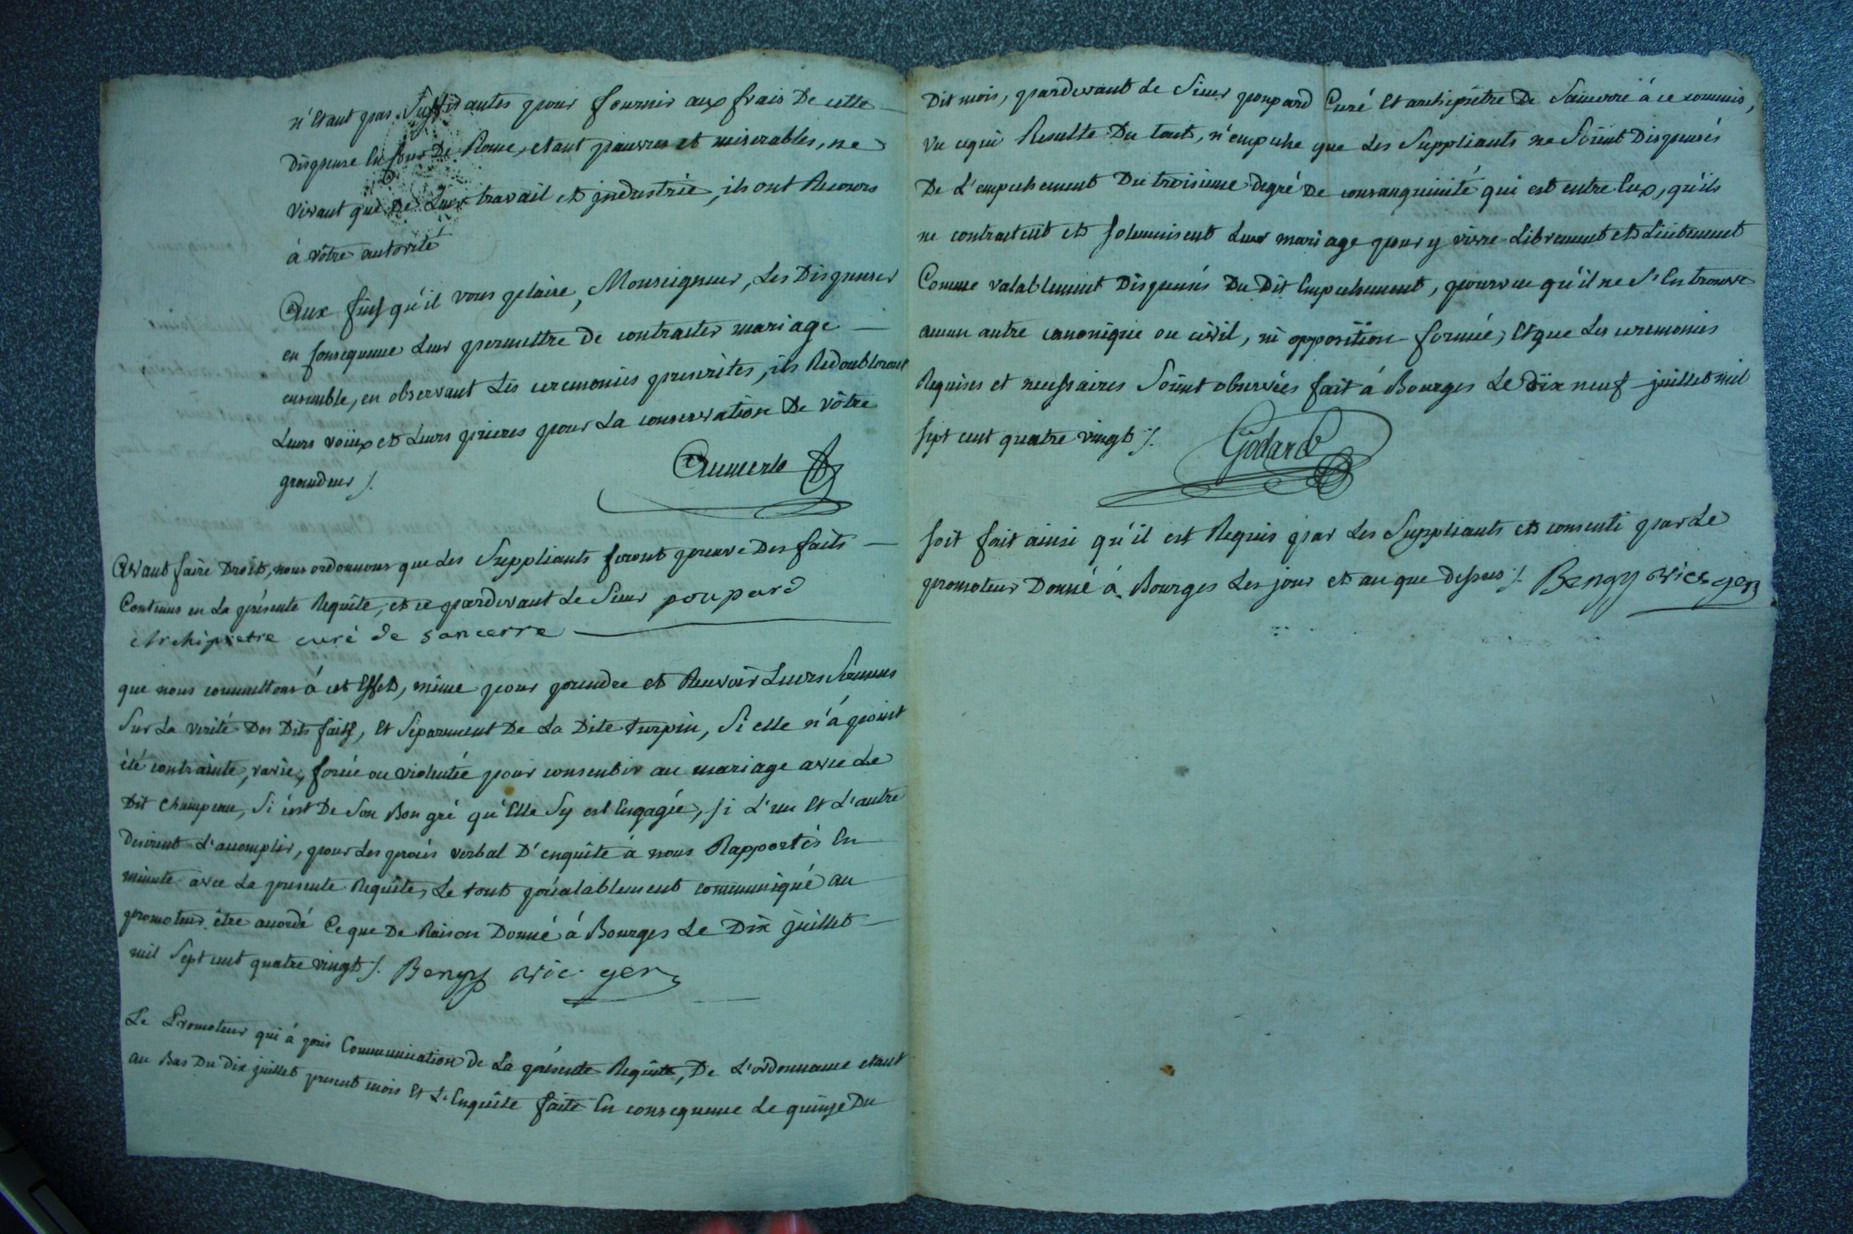 n'Etant pas Suffisantes pour fournir aux frais De cette
Dispense En Cour De Rome, etant pauvres et miserables, ne
vivant que de Leur travail et jndustrie, ils ont Recours
à vôtre autorité
Aux fins qu'il vous plaise, Monseigneur, Les Dispenser
en Consequence Leur permettre de contracter mariage
ensemble, en observant Les ceremonies prescrites, ils Redoubleront
Leurs voëux et Leurs prieres pour La conservation De vôtre
grandeur ./.
Aumerle
Avant faire Droit, nous ordonnons que Les Suppliants feront preuve Des faits
Contenus en La présente Requête, et ce pardevant Le Sieur poupard
Archipretre curé de sancerre
que nous commettons à cet Effet, même pour prendre et Recevoir Leurs Sermens
Sur La verité Des Dits faits, Et Séparement De La Dite turpin, Si elle n'á point
été contrainte, ravie, forcée ou violentée pour consentir au mariage avec Le
Dit Champeau, Si c'est De Son Bon gré qu'Elle Sy est Engagée, Si L'un Et L'autre
Desirent L'accomplir, pour Les procés verbal D'enquête á nous Rapportés En
minute avec La presente Requête, Le tout préalablement communiqué au
promoteur être accordé Ce que De Raison Donné á Bourges Le Dix juillet
mil Sept cent quatre vingt ./. Bengy vic. gen
Le Promoteur qui á pris Communication de La présente Requête, De L'ordonnance etant
au Bas Du dix juillet present mois Et L'Enquête faite En consequence Le quinze Du
Dit mois, pardevant Le Sieur poupard Curé Et archipretre De Sancerre á ce commis,
Vu ce qui Resulte Du tout, n'empeche que Les Suppliants ne Soient Dispensés
De L'empechement Du troisieme degré De consanguinité qui est entre Eux, qu'ils
ne contractent et Solemnisent Leur mariage pour y vivre Librement et Licitement
Comme valablement Dispensés Du Dit Empechement, pourvu qu'il ne S'En trouve
aucun autre canonique ou civil, ni opposition formée, Et que Les ceremonies
Requises et necessaires Soient observées fait á Bourges Le dix neuf juillet mil
Sept cent quatre vingt ./. Godard
Soit fait ainsi qu'il est Requis par Les Suppliants et consenti par Le
promoteur Donné á Bourges Les jour et an que dessus ./. Bengy vic. gen